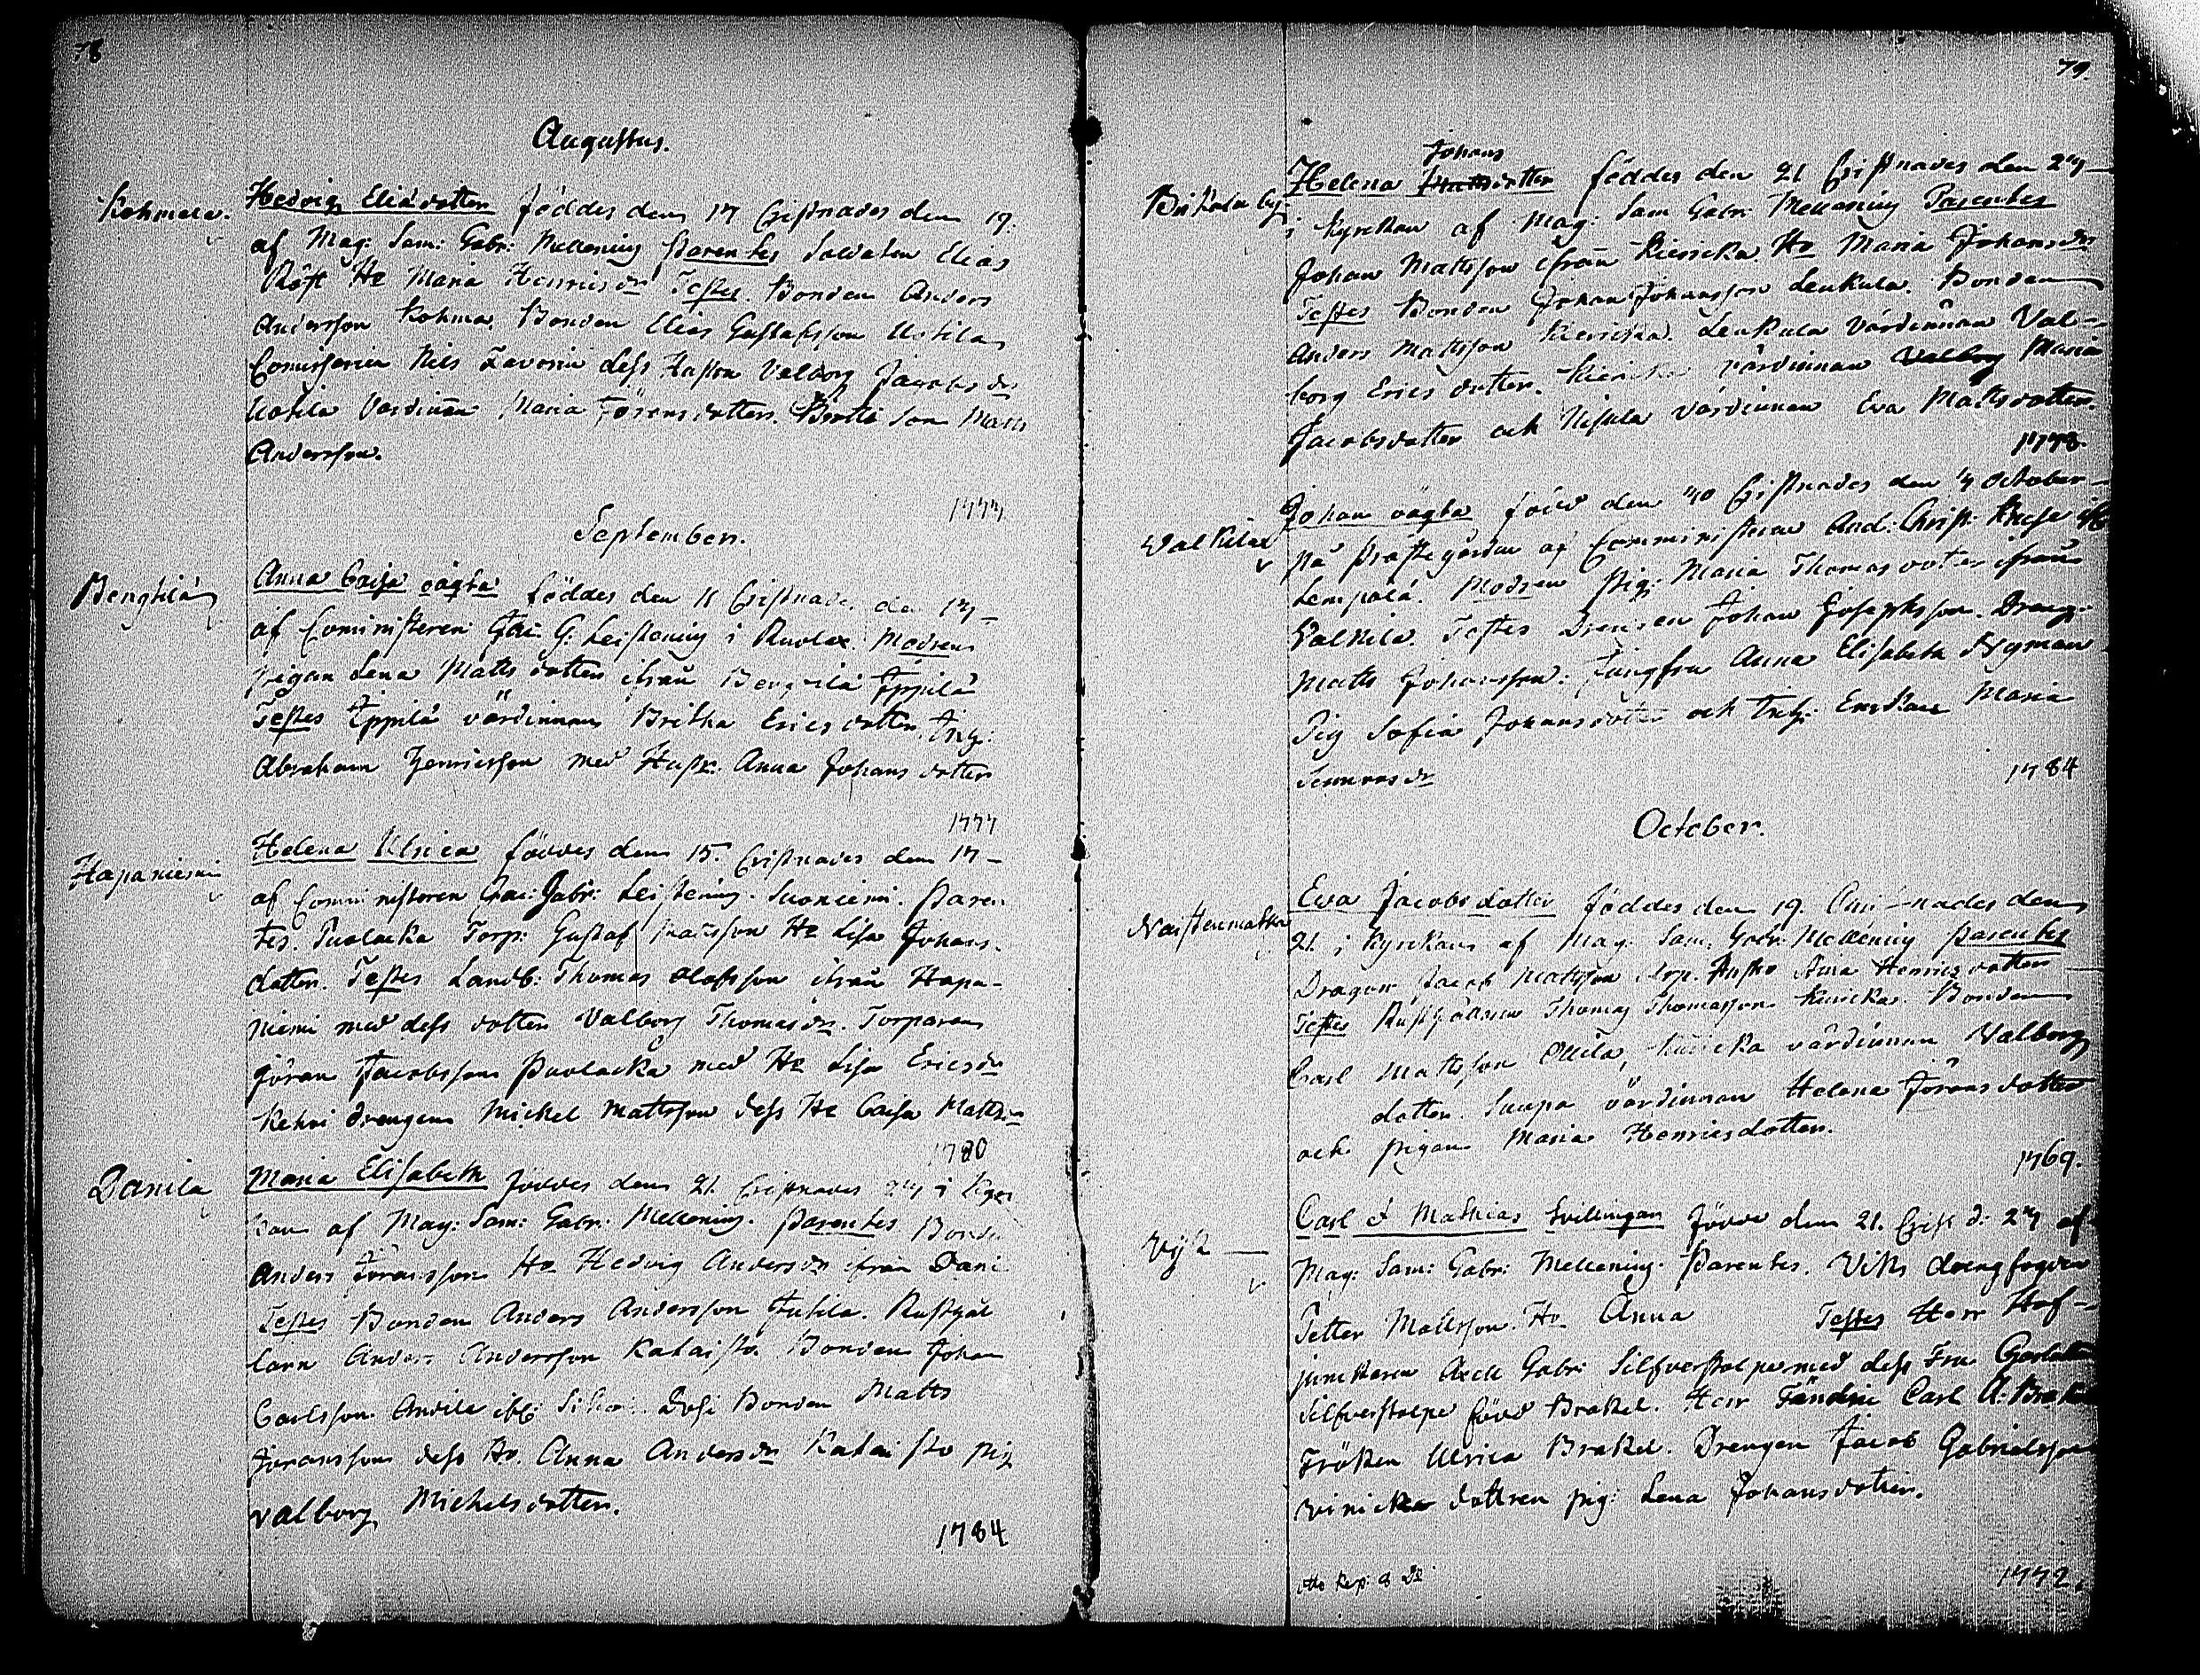 78
Augustus.
Kohmala. Hedvig Eliædotter föddes den 17 Cristnades den 19.
af Mag: Sam: Gabr: Mellenius Parentes Soldaten Elias
Röst Ho Maria Henricsdr Testes. Bonden Anders
Andersson Kohma. Bonden Elias Gustafsson Uotila
Comissarien Nils Zavorin dess Hustru Valborg Jacobsdr
Uotila Värdinnan Maria Jöransdotter. son Matts
Andersson.
1777
September.
Bengtilä Anna Caisa oägta föddes den 11 Cristnades den 17
af Comministeren G. Leistenius i Ruolax. Modren
pigan Lena Mattsdotter ifrån Bengtilä Äppilä
Testes Äppilä värdinnan Britha Ericsdotter,
Abraham Henricsson med Hustr. Anna Johansdotter
1777
Hapaniemi Helena Ulrica föddes den 15. Cristnades den 17
af Comministeren Gabr: Leistenius. Suoniemi. Paren-
tes. Puolacka Torp: Gustaf Isacsson Ho Lisa Johans-
dotter. Testes Landb: Thomas Olofsson ifrån Hapa-
niemi med dess dotter Valborg Thomasdr. Torparen
Jöran Jacobsson Puolacka med Ho Lisa Ericsdr
drengen Mickel Mattsson dess Ho Caisa Mattsdr
1780
Danila Maria Elisabeth föddes den 21. Cristnades 27 i Kyr
kan af Mag: Sam: Gabr: Mellenius. Parentes Bonden
Anders Jöransson Ho Hedvig Andersdr ifrån Dani
Testes Bonden Anders Andersson Jutila. Rusthål
laren Anders Andersson Kataisto Bonden Johan
Carlsson Anvila Bonden Matts
Jöransson dess Ho. Anna Andersdr Kataisto pig
Valborg Michelsdotter.
1784
79.
Johans
Helena dotter föddes den 21 Cristnades den 27
i kyrckan af Mag: Sam Gabr: Mellenius Parentes
Johan Mattsson ifrån Kiericka Ho Maria Johansdr
Testes Bonden Johan Johansson Leukula. Bonden
Anders Mattsson Kiericka. Leukula värdinnan Val-
borg Ericsdotter. Kiericka värdinnan Valborg Maria
Jacobsdotter och värdinnan Eva Mattsdotter.
1778.
Valkila Johan oägta född den 30 Cristnades den 4 October
på prästegården af Comministern And: Christ:
Lempälä. Modren pig: Maria Thomasdotter ifrån
Valkila. Testes Drengen Johan Josephsson. Dreng.
Matts Johansson: Jungfru Anna Elisabeth Nyman
Pig Sofia Johansdotter och Enckan Maria
Simonsdr
1784
October.
Naistenmatka Eva Jacobsdotter föddes den 19. Cristnades den
21. i Kyrckan af Mag: Sam. Gabr: Mellenius Parentes
Dragon Jacob Mattsson Hustro Henricsdotter
Testes Rusthållaren Thomas Thomasson Kiericka. Bonden
Carl Mattsson Ollila, Kiericka värdinnan Valborg
dotter. Suupa värdinnan Helena Jöransdotter
och pigan Maria Henricsdotter.
1769.
Vijk Carl & Mathias tvillingar födde den 21. Crist d: 27 af
Mag: Sam: Gabr: Mellenius. Parentes. Viks drengfogden
Petter Mattsson. Ho Anna Testes Herr Hof-
junckaren Axell Gabr: Silfverstolpe med dess Fru
Silfverstolpe född Brakel. Herr Fändric Carl A: Brakel
Fröken Ulrica Brakel. Drengen Jacob Gabrielsson
dottren pig: Lena Johansdotter.
1772.